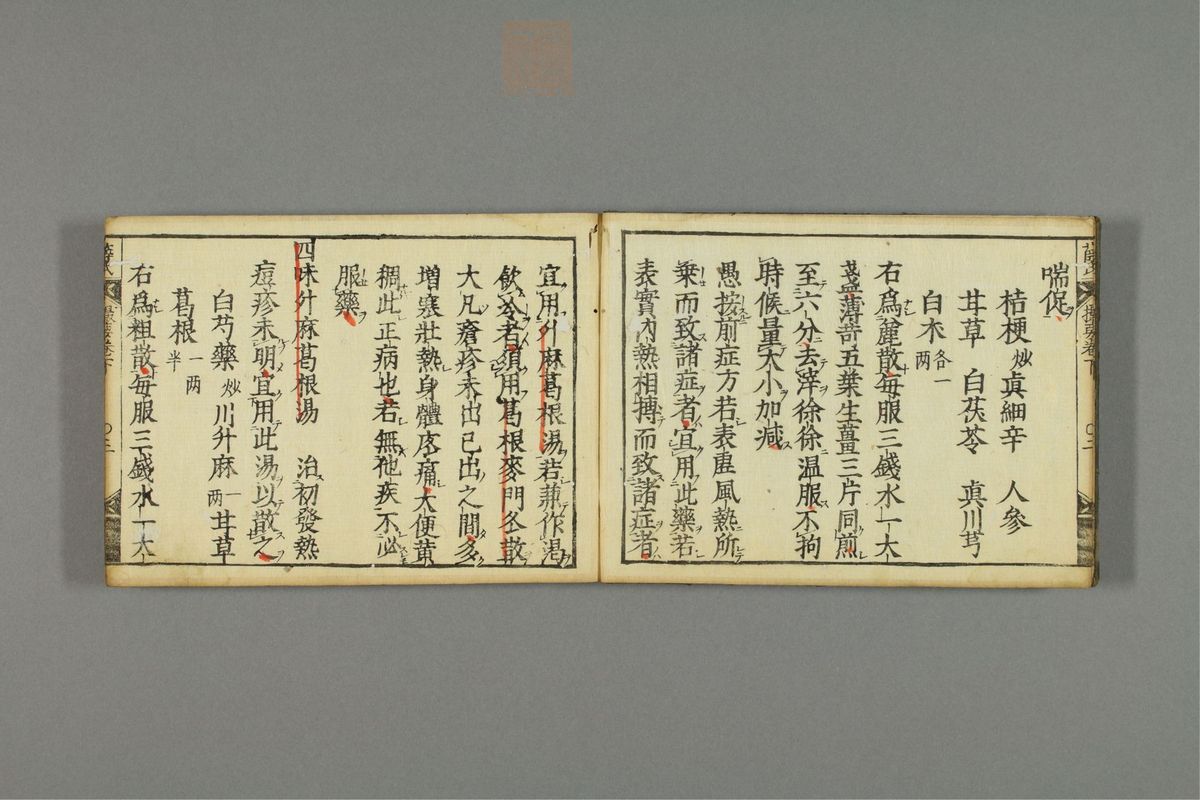 喘促
桔梗炒真細辛 人參
甘草 白茯苓 真川芎
白朮各一两
右為麄散每服三錢水一大
盞薄苛五葉生薑三片同煎
至六分去滓徐徐温服不拘
時候量大小加減
愚按前症方若表虛風熱所
乗而致諸症者宜用此藥若
表實内熱相搏而致諸症者
宜用升麻葛根湯若兼作渴
飲冷者須用葛根麥門冬散
大凡瘡疹未出已出之間多
増寒壯熱身體疼痛大便黄
稠此正病也若無他疾不必
服藥
四味升麻葛根湯 治初發熱
痘疹未明宜用此湯以散之
白芍藥炒川升麻一两甘草
葛根一两半
右為粗散每服三錢水一大